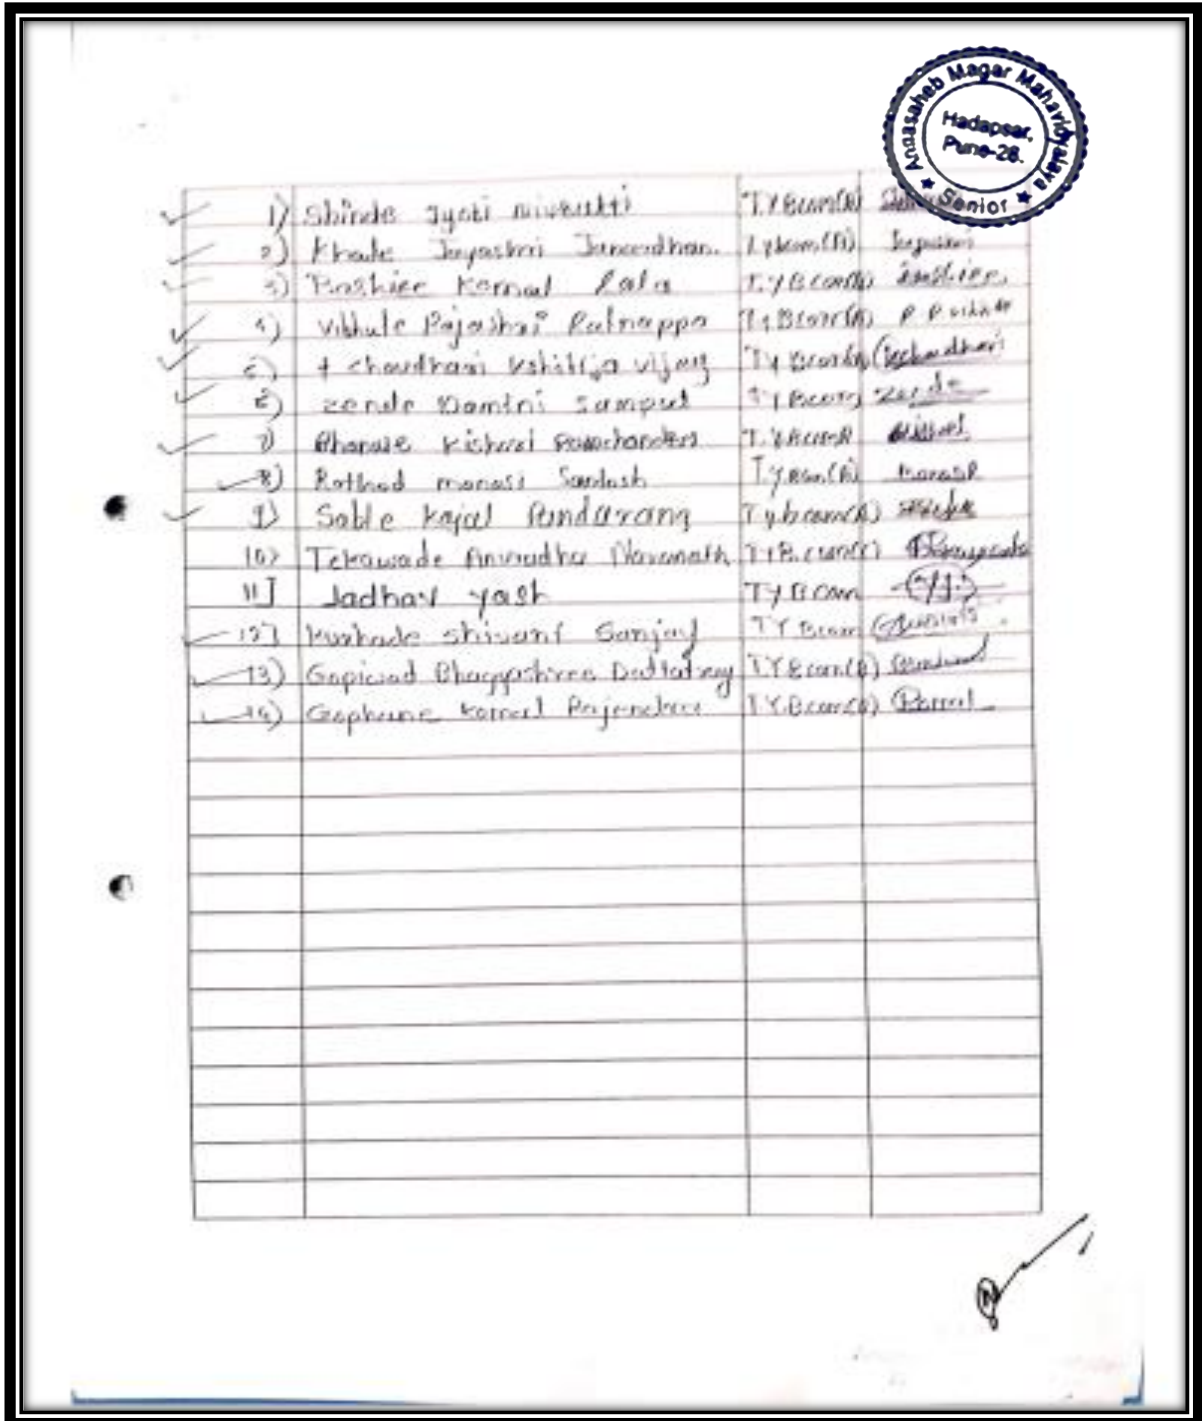 Annasaheb Magar Mahavidyalaya
Hadapsar,
Pune-28.
Senior
1) Shinde Jyoti Nivrutti T.Y.Bcom(A)
2) Khade Jayashri Janardhan. T.Y.bcom(A) Jayashri
3) Komal Lala T.Y.Bcom(A)
4) Vibhute Rajashri Ratnappa T.Y.Bcom(A)
5) + Choudhari Kshitija Vijay T.Y Bcom(A) Kchoudhari
6) Zende Damini Sampat T.Y Bcom Zende
7) Kishori Ramchandra T.Y.Bcom A
8) Rathod manasi Santosh T.Y.Bcom(A) Manasi
9) Sable Kajal Pandurang T.y.bcom(A)
10) Tekawade Anuradha Navanath T.Y.B.com(A)
11] Jadhav yash T.Y.B.com
12] Kurhade Shivani Sanjay T.Y Bcom
13) Gaikwad Bhagyashree Dattatray T.Y.Bcom(A)
14) Gophane Komal Rajendra T.Y.B.com(A) Komal